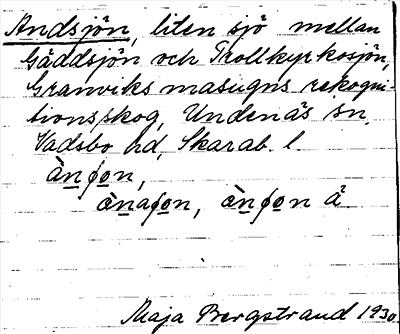 Andsjön, liten sjö mellan
Gäddsjön och Trollkyrkosjön,
Granviks masugns rekogni-
tionsskog, Undenäs sn,
Vadsbo hd, Skarab. l.
ànʃon,
ànaʃon, ànʃon å
Maja Bergstrand 1930.